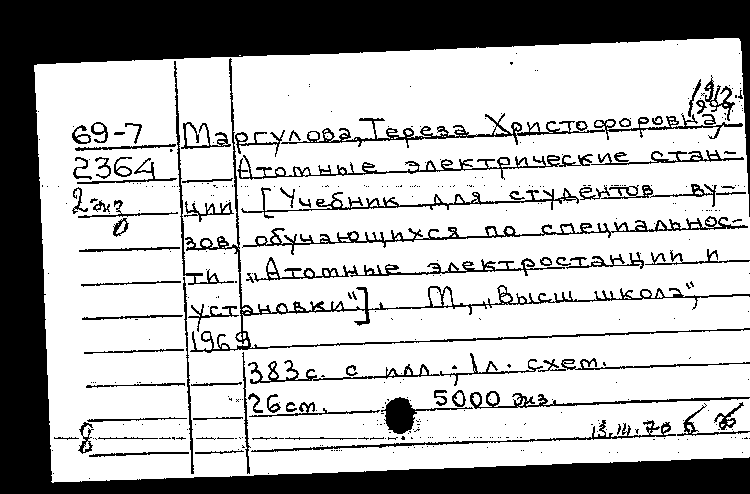 69-7 Маргулова, Тереза Христофоровна,
2364 Атомные электрические стан-
2 экз ции. [Учебник для студентов ву-
0 зов, обучающихся по специальнос-
ти „Атомные электростанции и
установки"]. М., „Высш школа",
1969.
383 с. с илл.; 1 л. схем.
26 ст. 5000 экз.
8 13.III.70